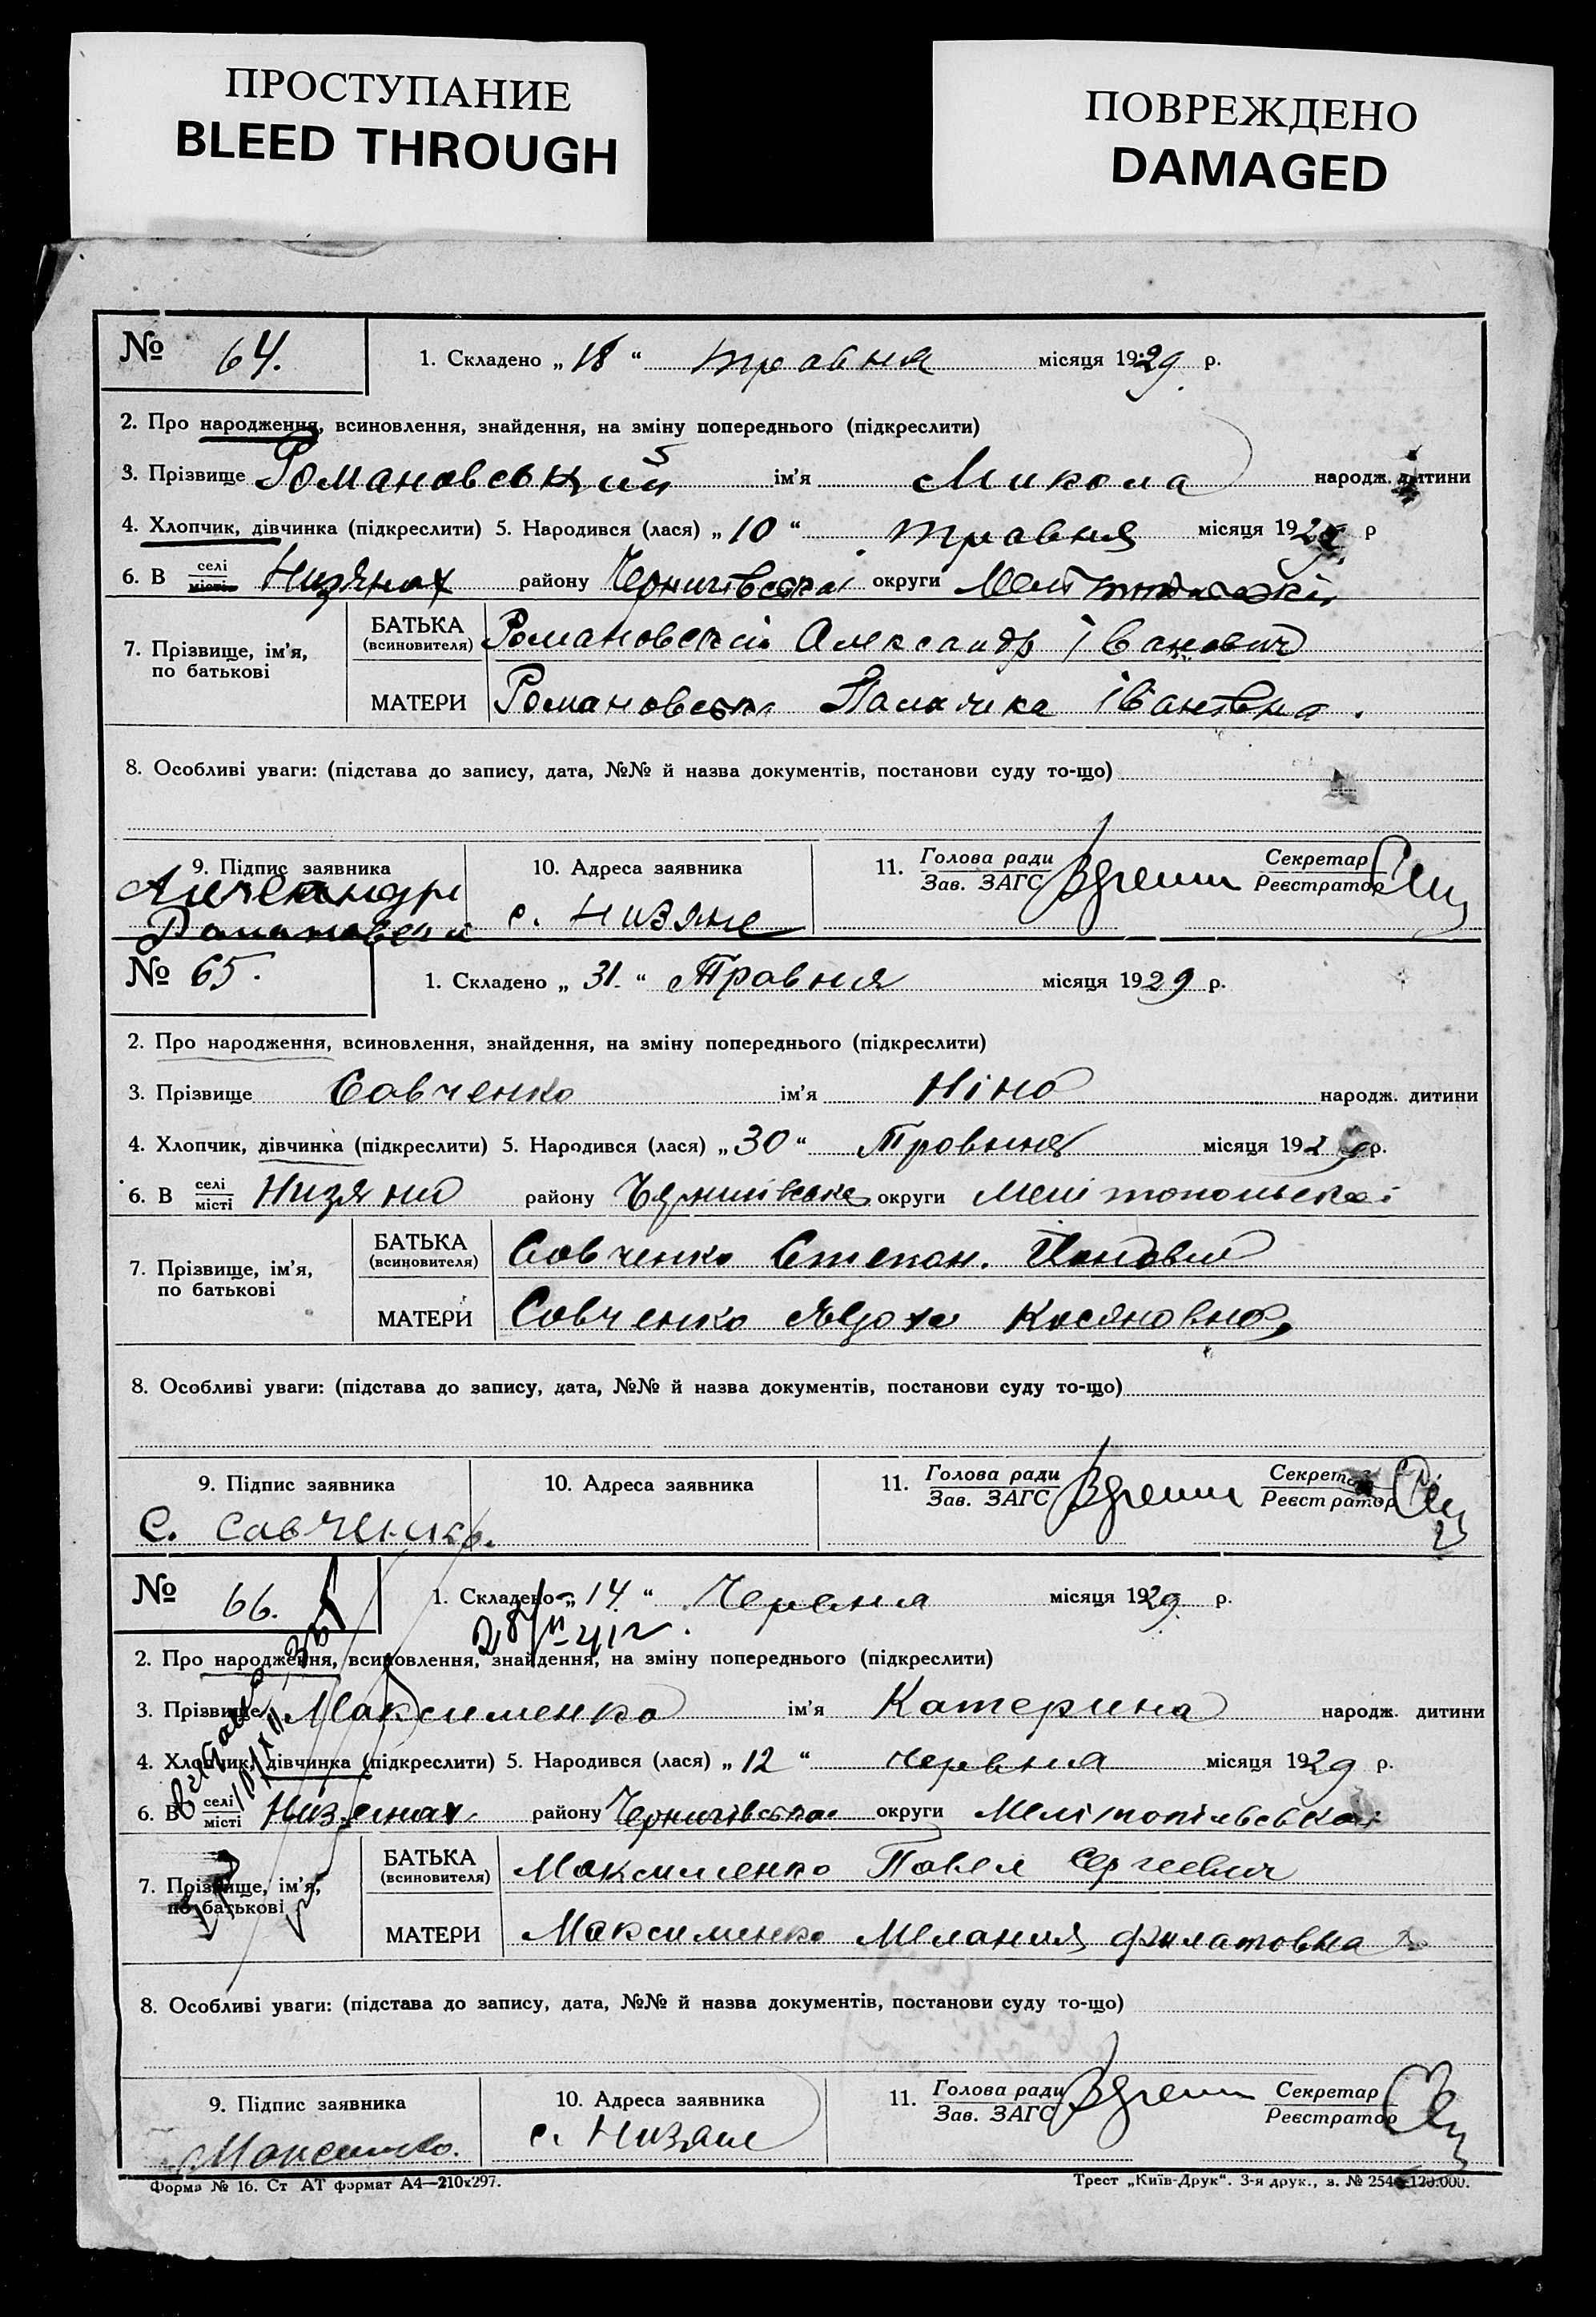 ПРОСТУПАНИЕ
BLEED THROUGH
ПОВРЕЖДЕНО
DAMAGED
№ 64.
1. Складено „ 18 “ травня місяця 1929 р.
2. Про народження, всиновлення, знайдення, на зміну попереднього (підкреслити)
3. Прізвище Романовський ім’я Микола народж. дитини
4. Хлопчик, дівчинка (підкреслити) 5. Народився (лася) „ 10 “ травня місяця 1929 р
6. В селі місті Низянах району Чернигівської округи
7. Прізвище, ім’я, по батькові
БАТЬКА (всиновителя) Романовский Александр Іванович
МАТЕРИ Романовська Іванівна.
8. Особливі уваги: (підстава до запису, дата, №№ й назва документів, постанови суду то-що)
9. Підпис заявника
10. Адреса заявника
11. Голова ради Зав. ЗАГС
Секретар Реєстратор
Александр
Романовский
с. Низяне
№ 65.
1. Складено „ 31. “ Травня місяця 1929 р.
2. Про народження, всиновлення, знайдення, на зміну попереднього (підкреслити)
3. Прізвище Савченко ім’я Ніна народж. дитини
4. Хлопчик, дівчинка (підкреслити) 5. Народився (лася) „ 30 “ Травння місяця 1929 р.
6. В селі місті Низяни району округи Мелітопольскоі
7. Прізвище, ім’я, по батькові
БАТЬКА (всиновителя) Савченко Степан.
МАТЕРИ Савченко Явдоха Касяновна
8. Особливі уваги: (підстава до запису, дата, №№ й назва документів, постанови суду то-що)
9. Підпис заявника
10. Адреса заявника
11. Голова ради Зав. ЗАГС
Секретар Реєстратор
С. Савченко.
№ 66.
1. Складено „ 14. “ Червня місяця 1929 р.
2. Про народження, всиновлення, знайдення, на зміну попереднього (підкреслити)
3. Прізвище Максименко ім’я Катерина народж. дитини
4. Хлопчик, дівчинка (підкреслити) 5. Народився (лася) „ 12 “ червня місяця 1929 р.
6. В селі місті Низянах району Чернигівської округи Мелітопільськоі
7. Прізвище, ім’я, по батькові
БАТЬКА (всиновителя) Максименко Павел Сергеевич
МАТЕРИ Максименко Мелания Филатовна
8. Особливі уваги: (підстава до запису, дата, №№ й назва документів, постанови суду то-що)
9. Підпис заявника
10. Адреса заявника
11. Голова ради Зав. ЗАГС
Секретар Реєстратор
с. Низяне
Форма № 16. Ст АТ формат А4—210х297.
Трест „Київ-Друк“. 3-я друк., з. № 254 120.000.